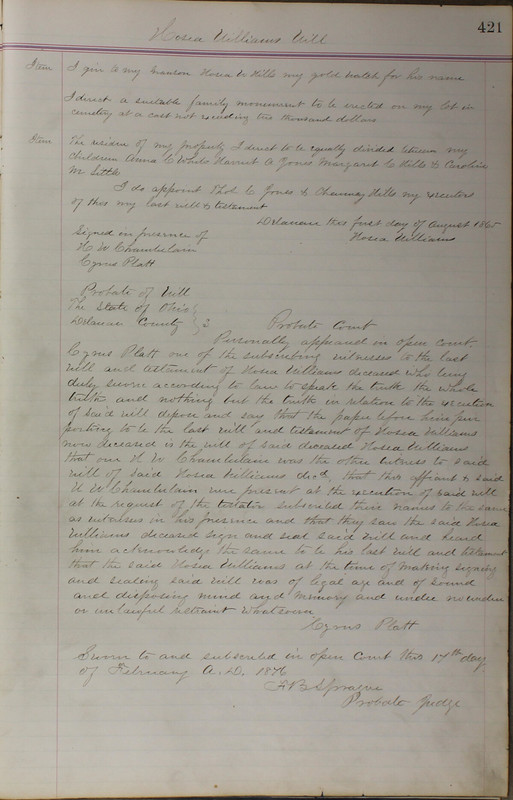 421
Hosea Williams Will
Item I give to my Granson Hosea W Hills my gold watch for his name
I direct a suitable family monument to be erected on my lot in
cemetery at a cost not exceeding two thousand dollars
Item The residue of my property I direct to be equally divided between my
children Anna C White Harriet A Jones Margaret C Hills & Caroline
M Little
I do appoint Thos C Jones & Chauncey Hills my executors
of this my last will & testament
Delaware this first day of August 1865
Signed in presence of Hosea Williams
H W Chamberlain
Cyrus Platt
Probate of Will
The State of Ohio
Delaware County SS Probate Court
Personally appeared in open court
Cyrus Platt one of the subscribing witnesses to the last
will and testament of Hosea Williams deceased who being
duly sworn according to law to speak the truth the whole
truth and nothing but the truth in relation to the execution
of said will depose and say that the paper before him pur
porting to be the last will and testament of Hosea Williams
now deceased is the will of said deceased Hosea Williams
that one H W Chamberlain was the other witness to said
will of said Hosea Williams decd, that this affiant & said
H W Chamberlain were present at the execution of said will
at the request of the testator subscribed their names to the same
as witnesses in his presence and that they saw the said Hosea
Williams deceased sign and seal said will and heard
him acknowledge the same to be his last will and testament
that the said Hosea Williams at the time of making signing
and sealing said will was of legal age and of sound
and disposing mind and memory and under no undue
or unlawful restraint whatsoever
Cyrus Platt
Sworn to and subscribed in open Court this 17th day
of February A.D. 1876
F B Sprague
Probate Judge